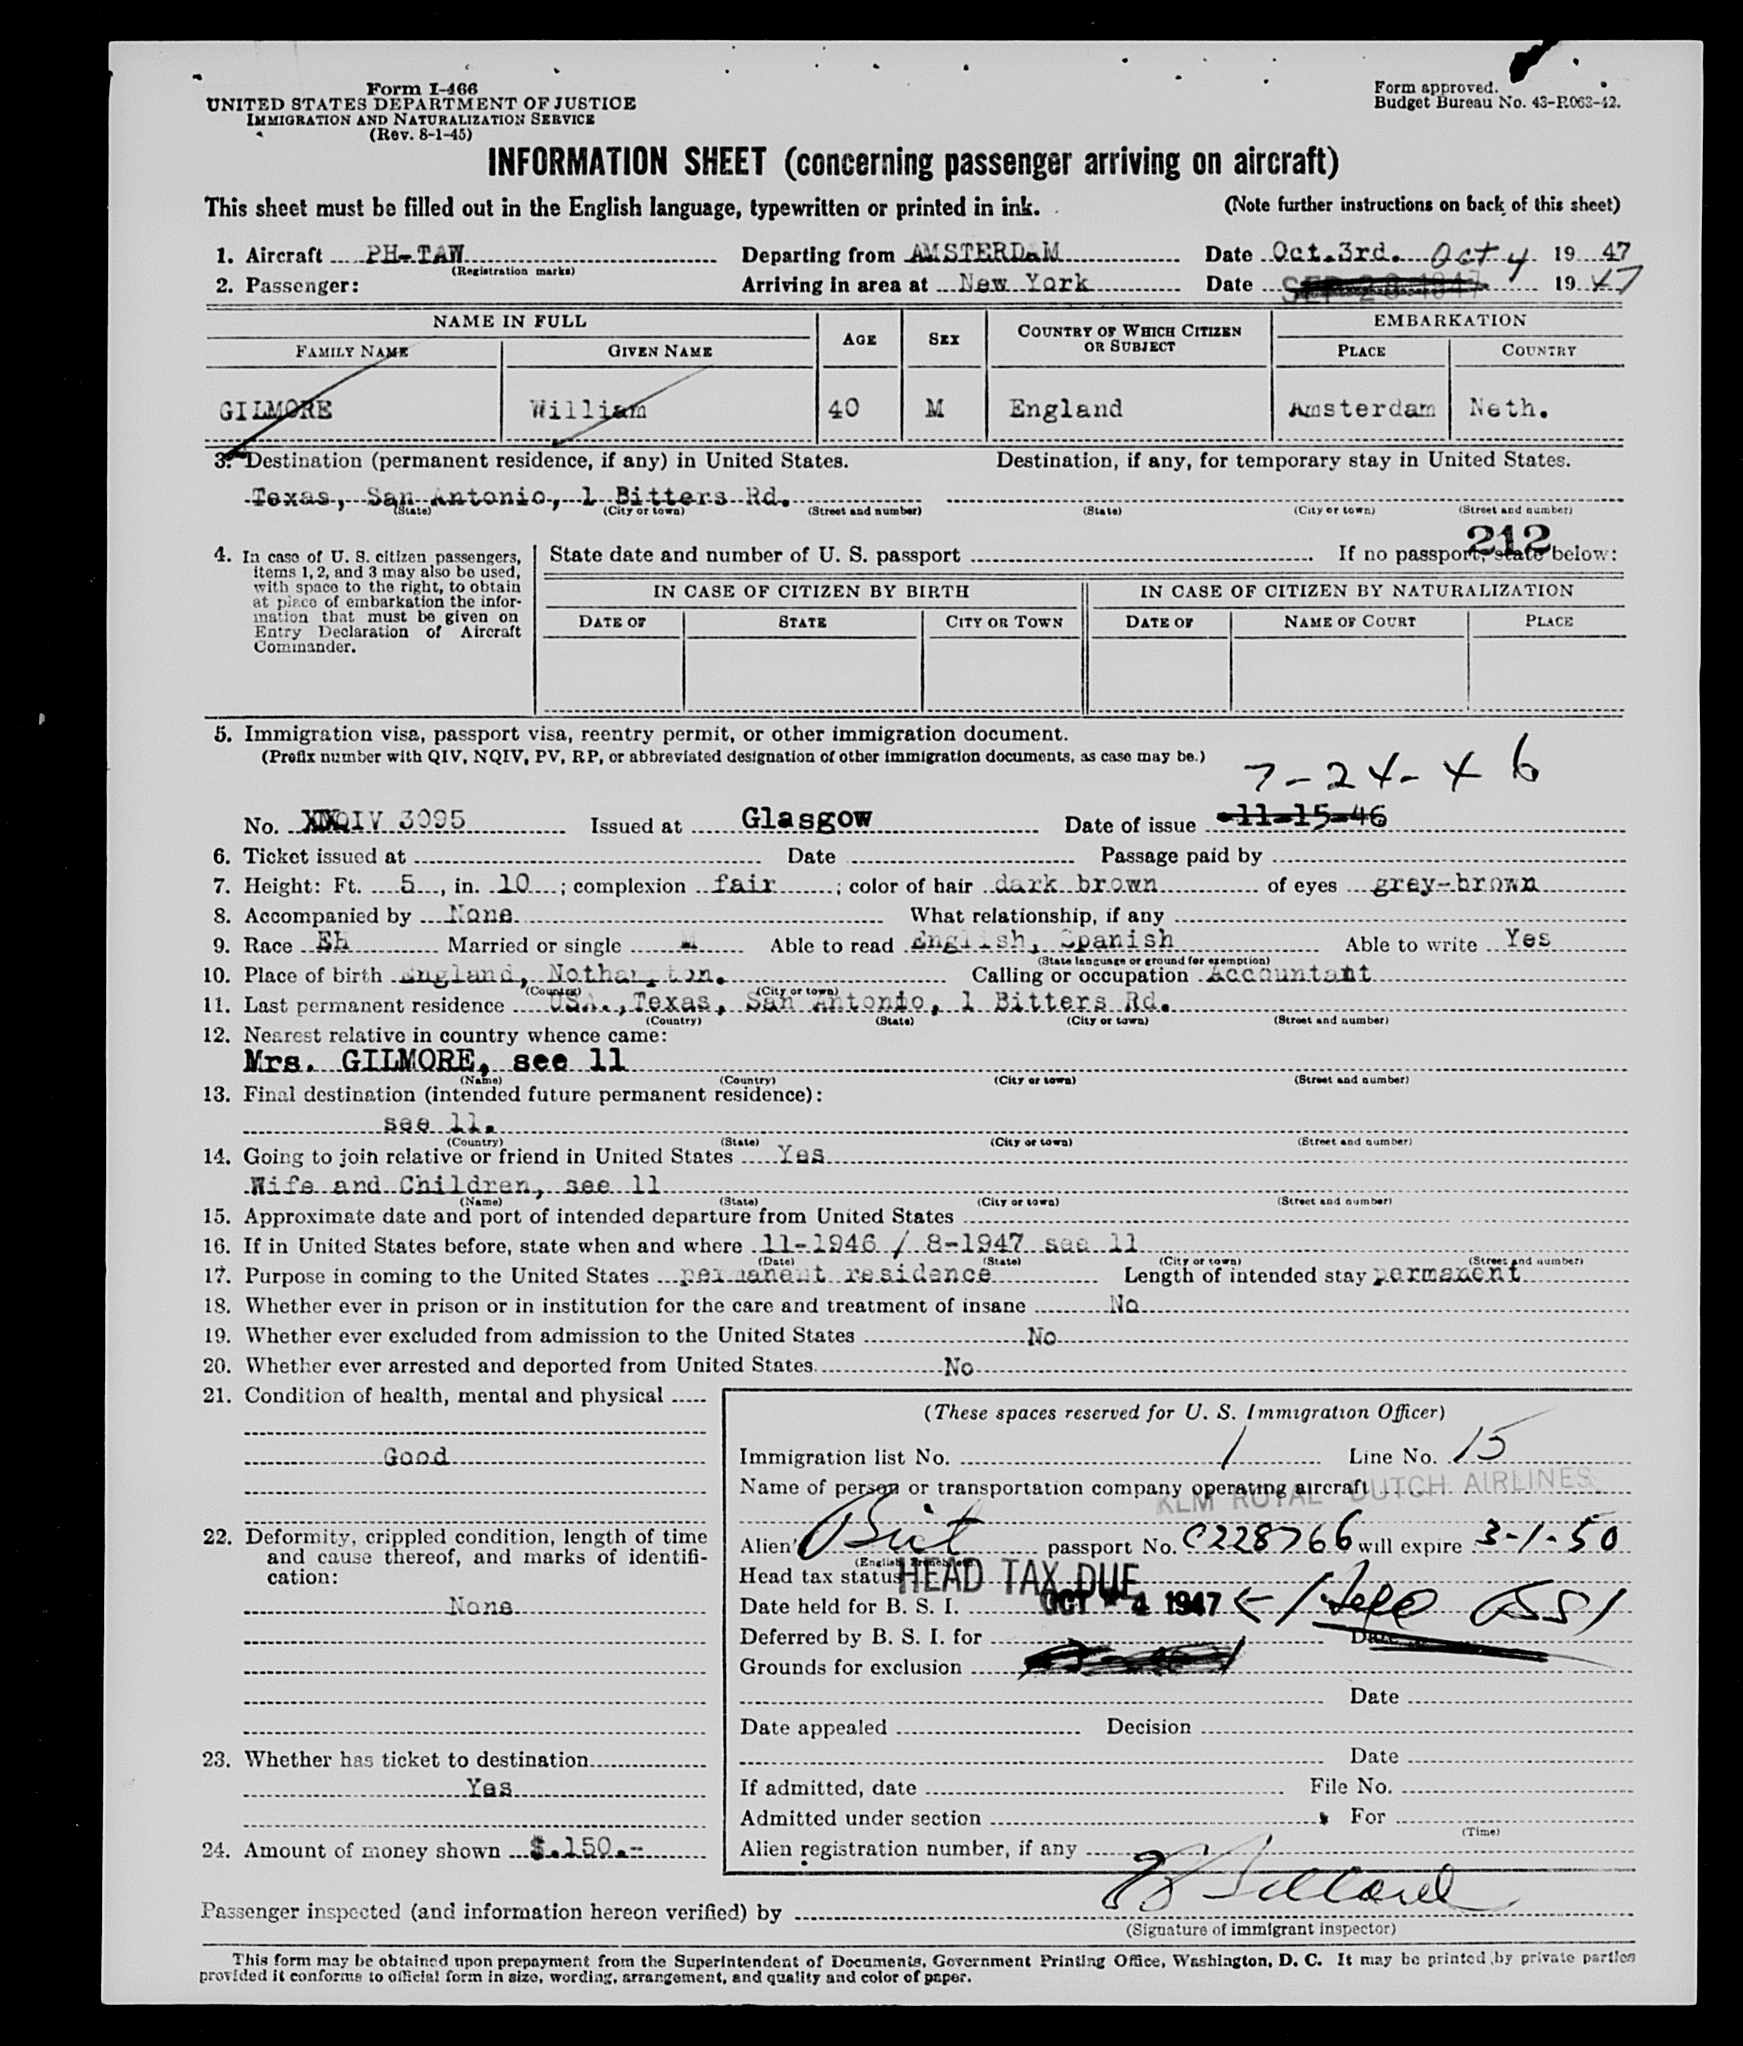 Form I-466
UNITED STATES DEPARTMENT OF JUSTICE
IMMIGRATION AND NATURALIZATION SERVICE
(Rev. 8-1-45)
Form approved.
Budget Bureau No. 43-R063-42.
INFORMATION SHEET (concerning passenger arriving on aircraft)
This sheet must be filled out in the English language, typewritten or printed in ink. (Note further instructions on back of this sheet)
1. Aircraft PH-TAW Departing from AMSTERDAM Date Oct.3rd. Oct 4 1947
(Registration marks)
2. Passenger: Arriving in area at New York Date 1947
NAME IN FULL AGE SEX COUNTRY OF WHICH CITIZEN OR SUBJECT EMBARKATION
FAMILY NAME GIVEN NAME PLACE COUNTRY
GILMORE William 40 M England Amsterdam Neth.
3. Destination (permanent residence, if any) in United States. Destination, if any, for temporary stay in United States.
Texas, San Antonio, 1 Bitters Rd.
(State) (City or town) (Street and number) (State) (City or town) (Street and number)
212
4. In case of U. S. citizen passengers, items 1, 2, and 3 may also be used, with space to the right, to obtain at place of embarkation the information that must be given on Entry Declaration of Aircraft Commander.
State date and number of U. S. passport If no passport, state below:
IN CASE OF CITIZEN BY BIRTH IN CASE OF CITIZEN BY NATURALIZATION
DATE OF STATE CITY OR TOWN DATE OF NAME OF COURT PLACE
5. Immigration visa, passport visa, reentry permit, or other immigration document.
(Prefix number with QIV, NQIV, PV, RP, or abbreviated designation of other immigration documents, as case may be.)
7-24-46
No. QIV 3095 Issued at Glasgow Date of issue 11-15-46
6. Ticket issued at Date Passage paid by
7. Height: Ft. 5, in. 10; complexion fair; color of hair dark brown of eyes grey-brown
8. Accompanied by None What relationship, if any
9. Race EH Married or single M Able to read English, Spanish Able to write Yes
(State language or ground for exemption)
10. Place of birth England, Nothampton. Calling or occupation Accountant
(Country) (City or town)
11. Last permanent residence USA., Texas, San Antonio, 1 Bitters Rd.
(Country) (State) (City or town) (Street and number)
12. Nearest relative in country whence came:
Mrs. GILMORE, see 11
(Name) (Country) (City or town) (Street and number)
13. Final destination (intended future permanent residence):
see 11.
(Country) (State) (City or town) (Street and number)
14. Going to join relative or friend in United States Yes
Wife and Children, see 11
(Name) (State) (City or town) (Street and number)
15. Approximate date and port of intended departure from United States
16. If in United States before, state when and where 11-1946 / 8-1947 see 11
(Date) (State) (City or town) (Street and number)
17. Purpose in coming to the United States permanent residence Length of intended stay permanent
18. Whether ever in prison or in institution for the care and treatment of insane No
19. Whether ever excluded from admission to the United States No
20. Whether ever arrested and deported from United States No
21. Condition of health, mental and physical
Good
22. Deformity, crippled condition, length of time and cause thereof, and marks of identification:
None
23. Whether has ticket to destination
Yes
24. Amount of money shown $.150.-
(These spaces reserved for U. S. Immigration Officer)
Immigration list No. 1 Line No. 15
Name of person or transportation company operating aircraft
KLM ROYAL DUTCH AIRLINES
Alien's Brit passport No. C228766 will expire 3-1-50
Head tax status HEAD TAX DUE
Date held for B. S. I. OCT 4 1947
Deferred by B. S. I. for Date
Grounds for exclusion
Date
Date appealed Decision
Date
If admitted, date File No.
Admitted under section For
(Time)
Alien registration number, if any
Passenger inspected (and information hereon verified) by
(Signature of immigrant inspector)
This form may be obtained upon prepayment from the Superintendent of Documents, Government Printing Office, Washington, D. C. It may be printed by private parties
provided it conforms to official form in size, wording, arrangement, and quality and color of paper.